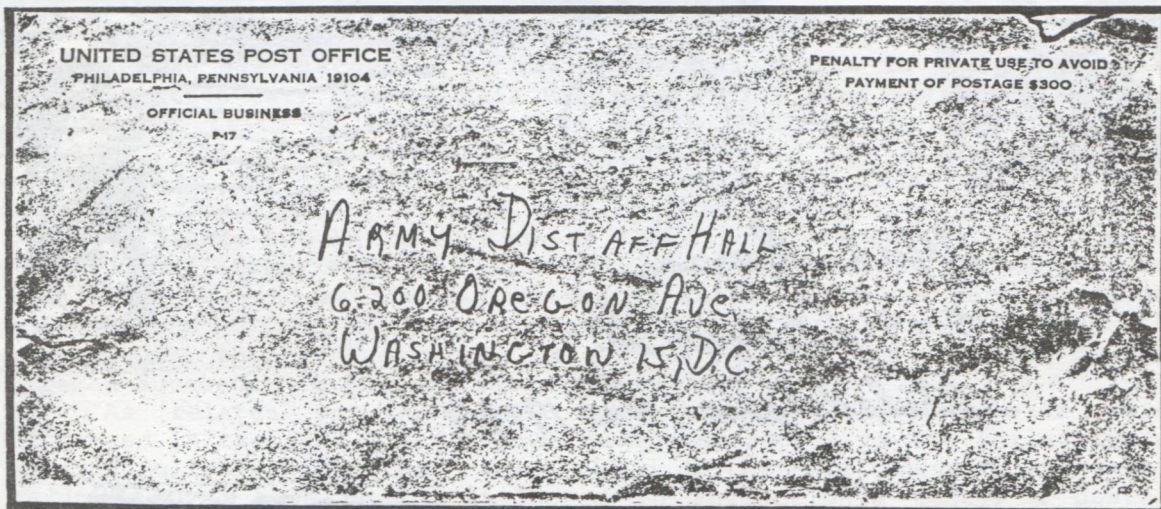 UNITED STATES POST OFFICE
PHILADELPHIA, PENNSYLVANIA 19104
OFFICIAL BUSINESS
P-17
PENALTY FOR PRIVATE USE TO AVOID
PAYMENT OF POSTAGE $300
ARMY DISTAFF HALL
6200 OREGON AVE.
WASHINGTON 15, DC